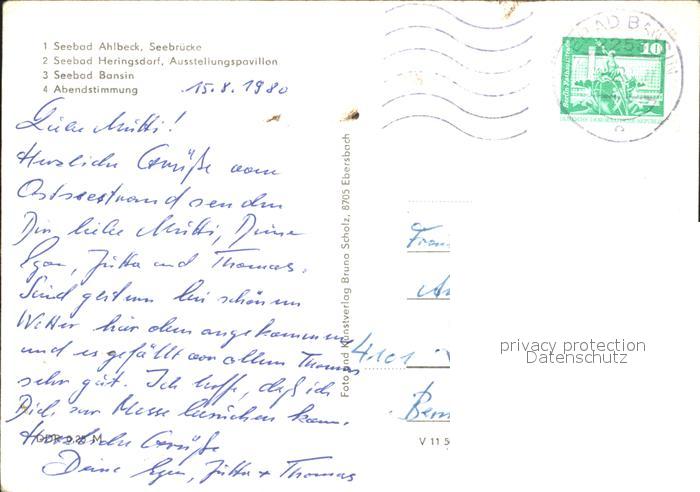 1 Seebad Ahlbeck, Seebrücke
2 Seebad Heringsdorf, Ausstellungspavillon
3 Seebad Bansin
4 Abendstimmung
15.8.1980
Liebe Mutti!
Herzliche Grüße vom
Ostseestrand senden
Dir, liebe Mutti, Deine
Egon, Jutta und Thomas.
Sind gestern bei schönem
Wetter hier oben angekommen
und es gefällt vor allem Thomas
sehr gut. Ich hoffe, daß ich
Dich zur Messe besuchen kann.
Herzliche Grüße
Deine Egon, Jutta + Thomas
DDR 0,25 M
Foto und Kunstverlag Bruno Scholz, 8705 Ebersbach
V 11 5
BAD BANSIN
10
4101
privacy protection
Datenschutz